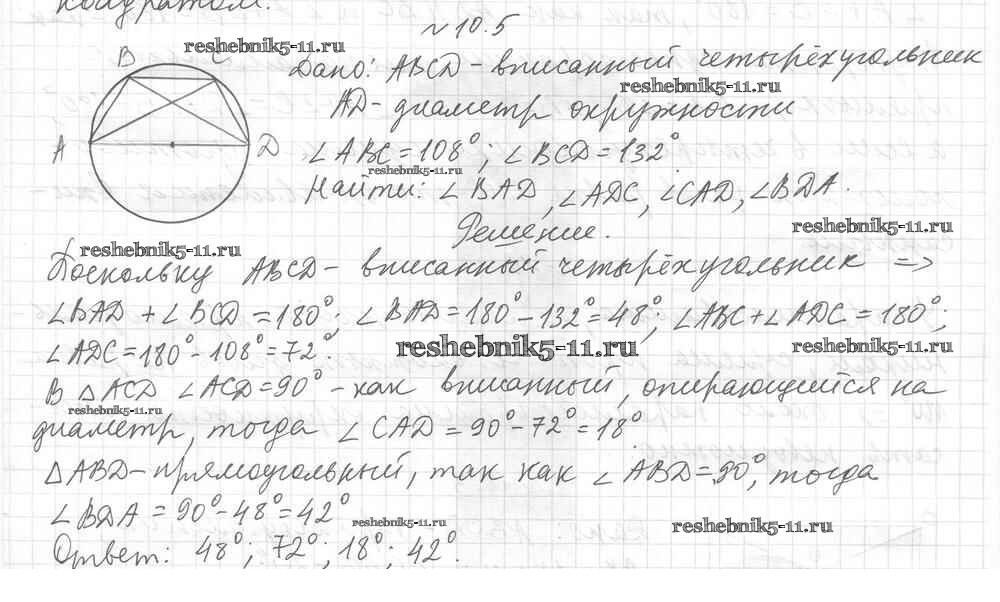 квадратом.
№10.5
reshebnik5-11.ru
B C
Дано: ABCD - вписанный четырёхугольник
reshebnik5-11.ru
AD - диаметр окружности
A D
∠ABC = 108°; ∠BCD = 132°
reshebnik5-11.ru
Найти: ∠BAD, ∠ADC, ∠CAD, ∠BDA.
reshebnik5-11.ru
Решение.
reshebnik5-11.ru
Поскольку ABCD - вписанный четырёхугольник =>
∠BAD + ∠BCD = 180°; ∠BAD = 180° - 132° = 48°; ∠ABC + ∠ADC = 180°;
∠ADC = 180° - 108° = 72°.
reshebnik5-11.ru
reshebnik5-11.ru
В △ACD ∠ACD = 90° - как вписанный, опирающийся на
reshebnik5-11.ru
диаметр, тогда ∠CAD = 90° - 72° = 18°.
△ABD - прямоугольный, так как ∠ABD = 90°, тогда
∠BDA = 90° - 48° = 42°
reshebnik5-11.ru
reshebnik5-11.ru
Ответ: 48°; 72°; 18°; 42°.